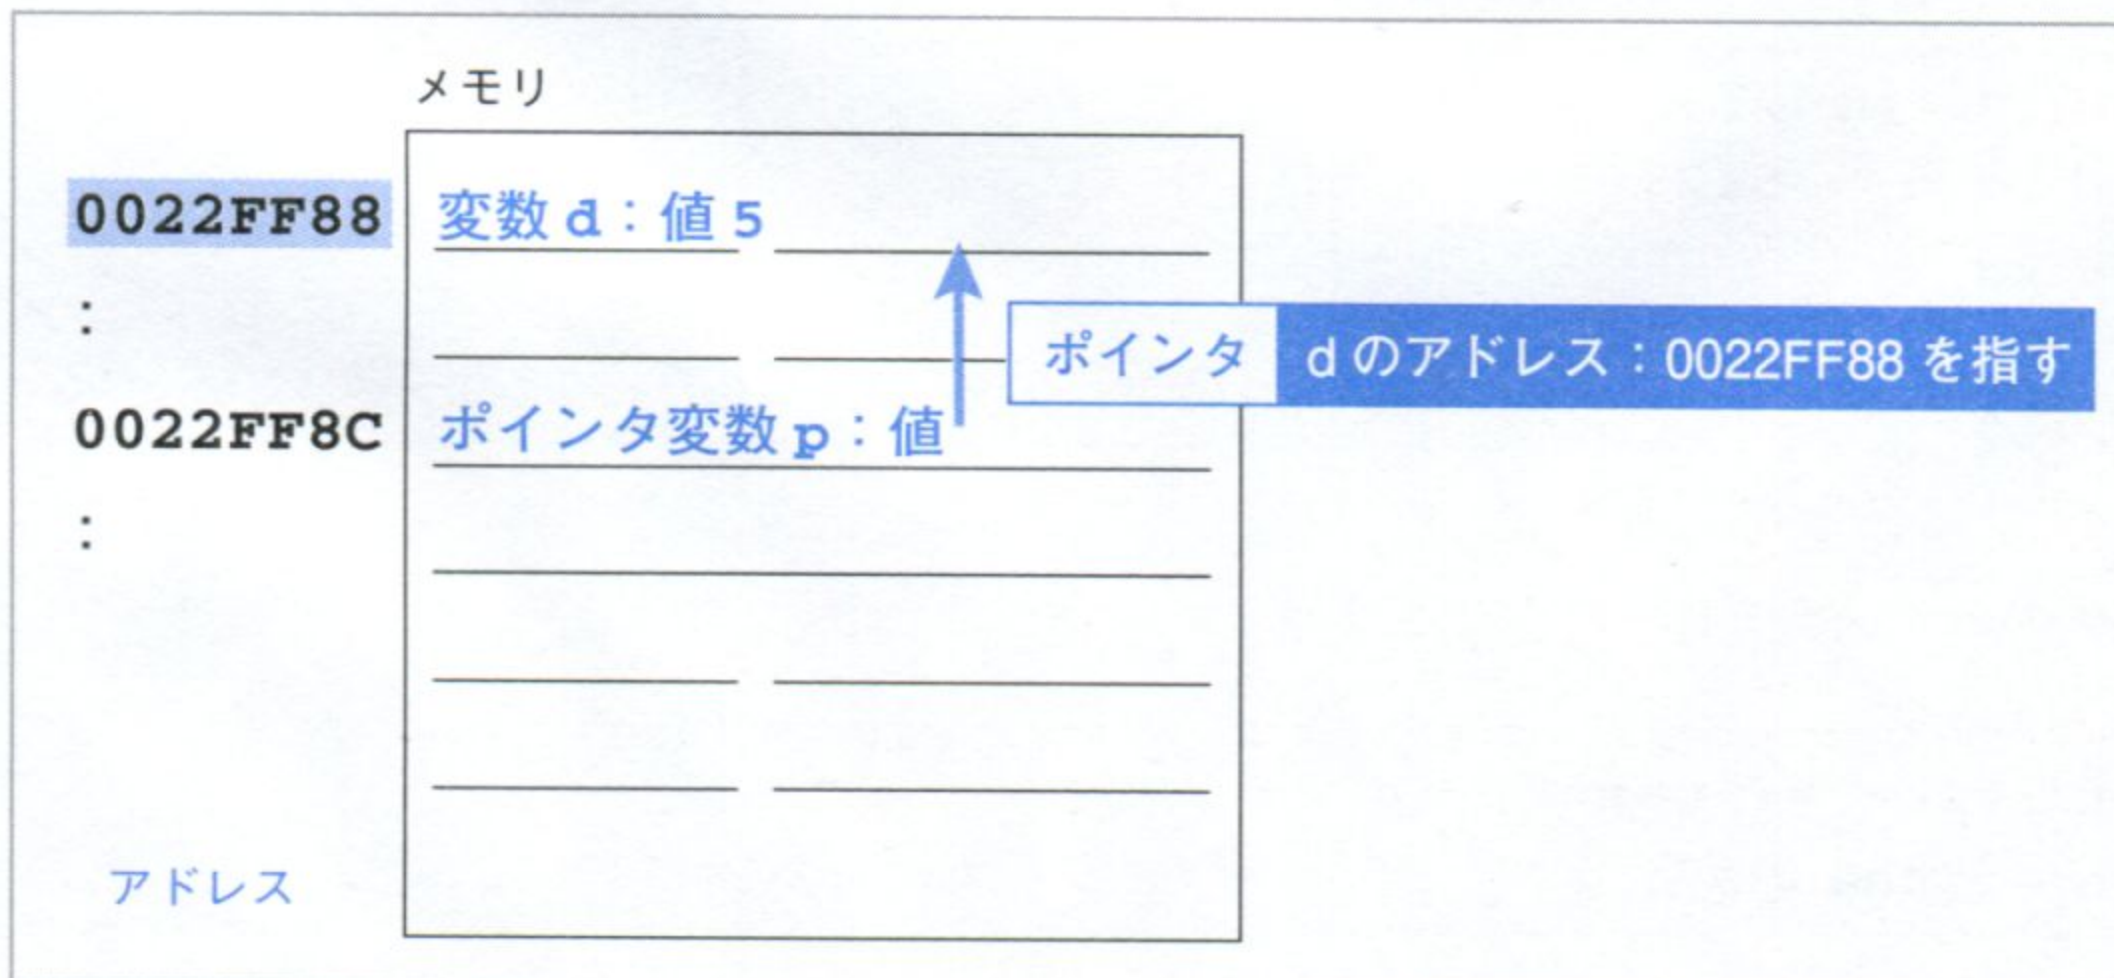 メモリ
0022FF88 変数 d：値 5
：
ポインタ d のアドレス：0022FF88 を指す
0022FF8C ポインタ変数 p：値
：
アドレス